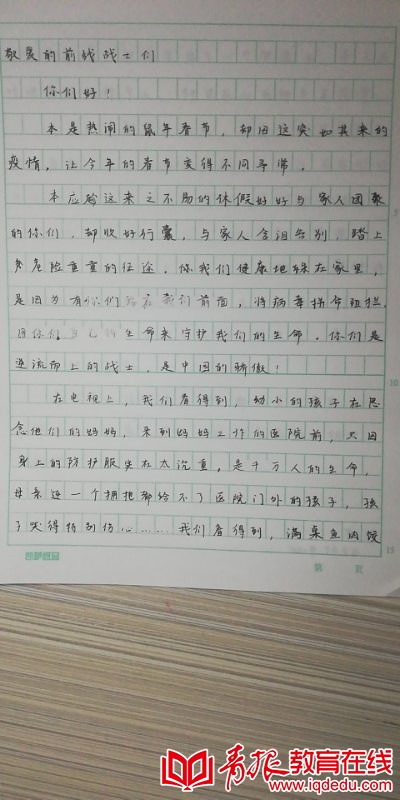 敬爱的前线战士们
你们好！
本是热闹的鼠年春节，却因这突如其来的
疫情，让今年的春节变得不同寻常。
本应趁这来之不易的休假好好与家人团聚
的你们，却收好行囊，与家人含泪告别，踏上
危险重重的征途。你我们健康地躲在家里，
是因为有你们 在我们前面，将病毒拼命阻拦。
因你们 生命来守护我们的生命。你们是
逆流而上的战士，是中国的骄傲！
在电视上，我们看得到，幼小的孩子在思
念他们的妈妈，来到妈妈工作的医院前，只因
身上的防护服实在太沉重，是千万人的生命，
母亲连一个拥抱都给不了医院门外的孩子，孩
子哭得特别伤心………我们看得到，满桌鱼肉饺
10
15
第 页
青报教育在线
www.iqdedu.com